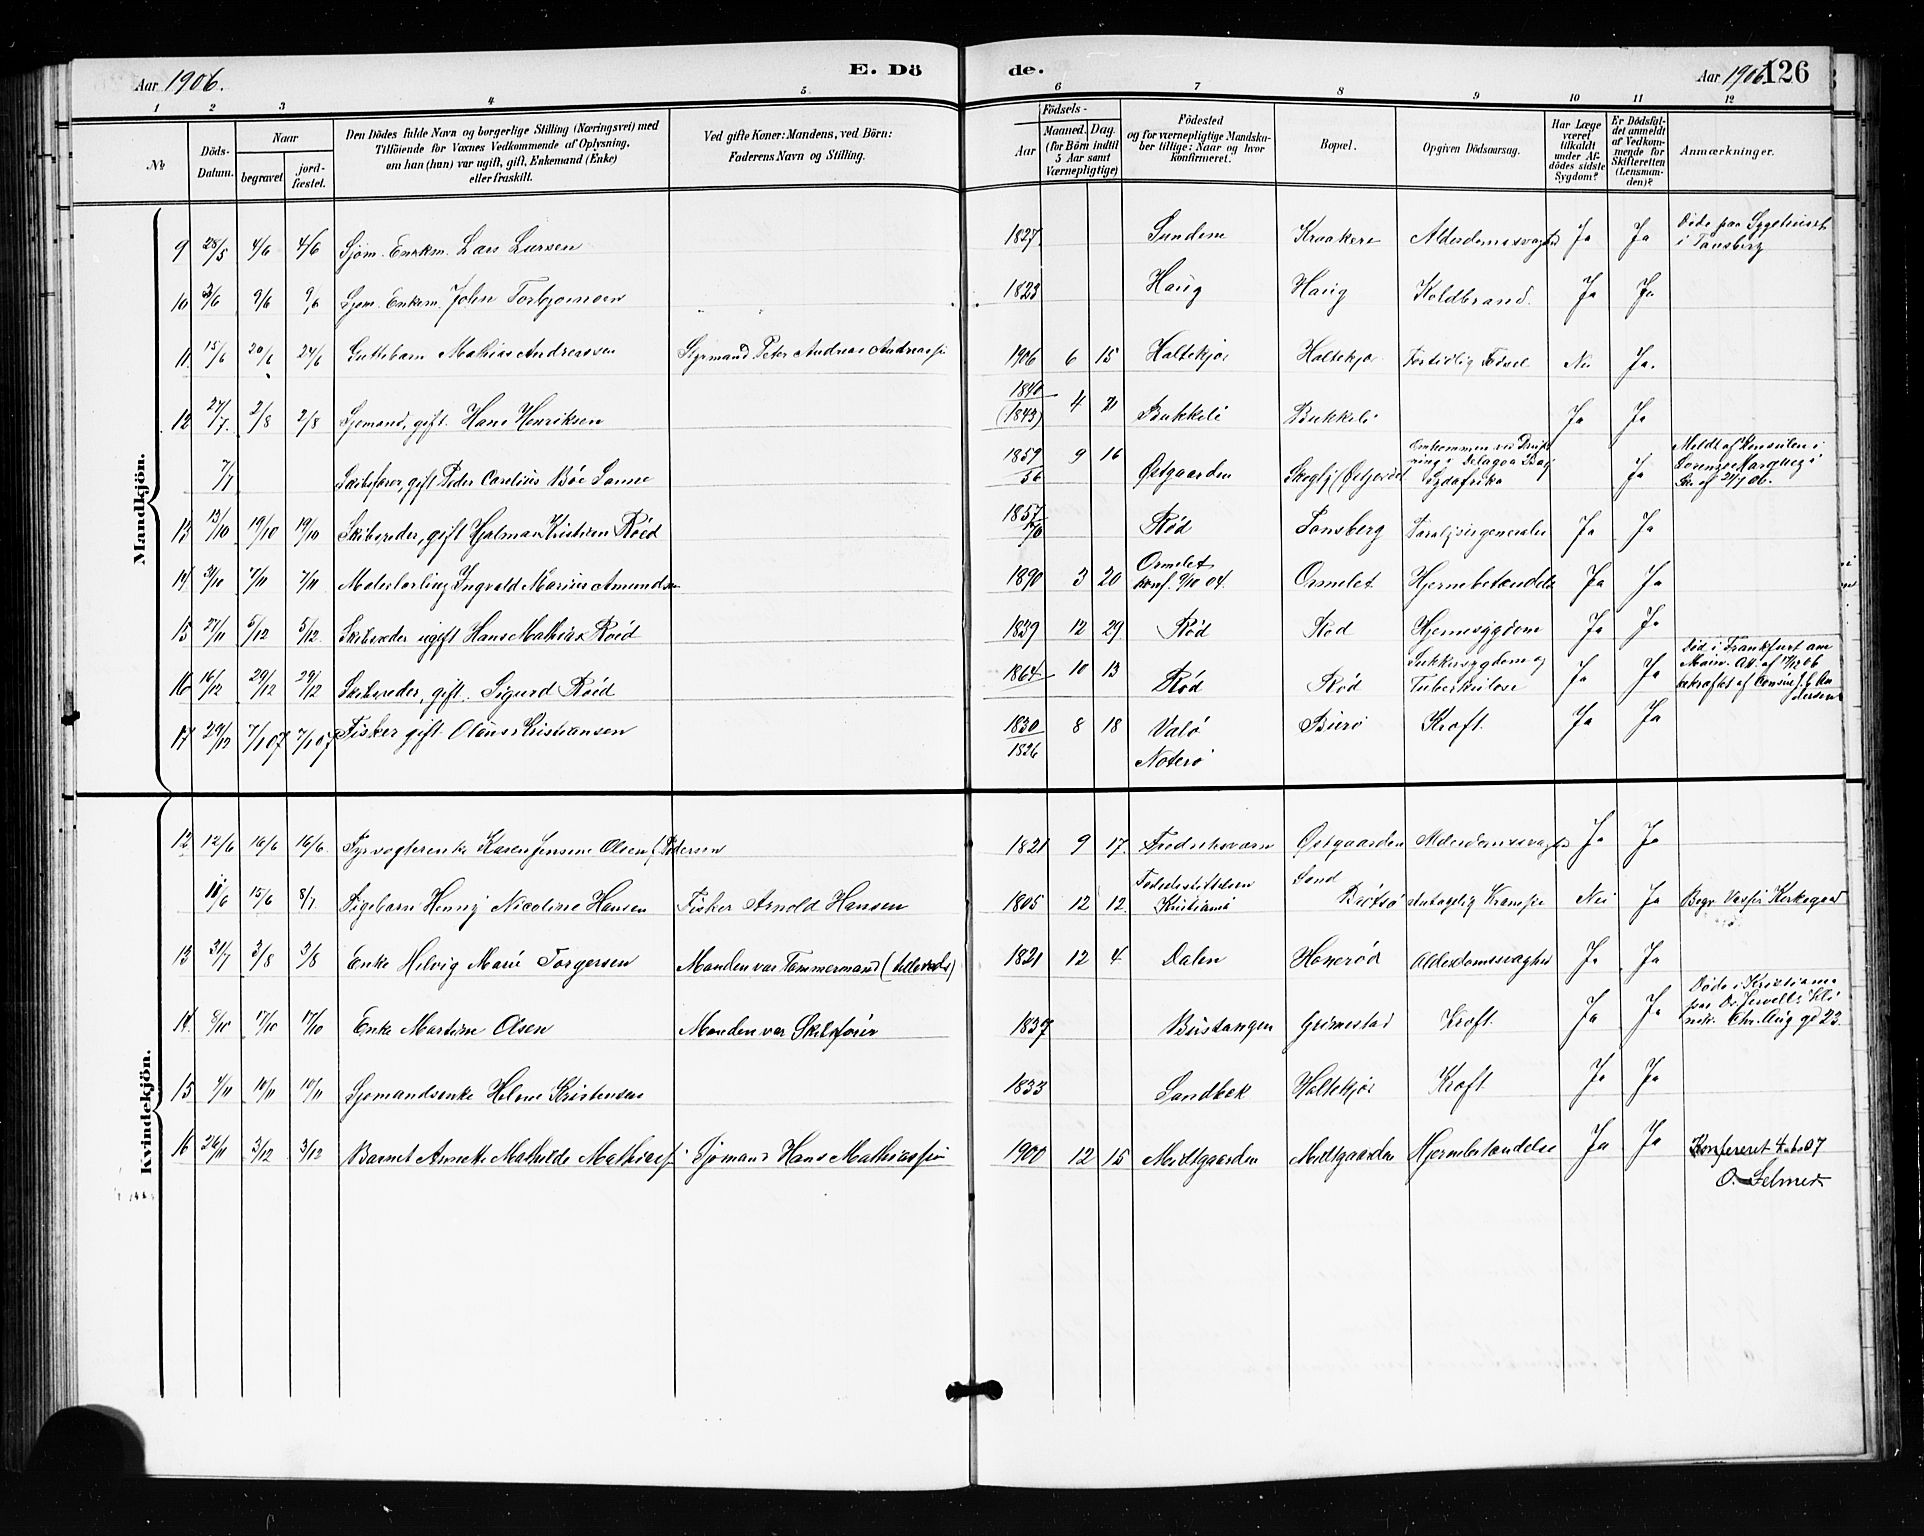 Aar 1906.
E. Dö
de.
Aar 1906. 126
1 2 3 4 5 6 7 8 9 10 11 12
No
Döds-Datum.
Naar
begravet
jord-fæstet.
Den Dödes fulde Navn og borgerlige Stilling (Næringsvei) med
Tilföiende for Voxnes Vedkommende af Oplysning,
om han (hun) var ugift, gift, Enkemand (Enke)
eller fraskilt.
Ved gifte Koner: Mandens, ved Börn:
Faderens Navn og Stilling.
Födsels-
Aar
Maaned. Dag.
(for Börn indtil
5 Aar samt
Værnepligtige)
Födested
og for værnepligtige Mandska-
ber tillige: Naar og hvor
konfirmeret.
Bopæl.
Opgiven Dödsaarsag.
Har Læge
været
tilkaldt
under Af-
dödes sidste
Sygdom?
Er Dödsfal-
det anmeldt
af Vedkom-
mende for
Skifteretten
(Lensman-
den)?
Anmærkninger.
Mandkjön.
9 28/5 4/6 4/6 Sjöm. Enkem. Lars Larsen 1827 Sundene Kraakere Alderdomssvaghed Ja Ja Döde paa Sygehuset
i Tönsberg
10 3/6 9/6 9/6 Sjöm. Enkem. John Torbjörnsen 1823 Haug Haug Koldbrand. Ja Ja
11 15/6 20/6 24/6 Guttebarn Mathias Andreassen Styrmand Peter Andreas Andreassen 1906 6 15 Holtekjær Holtekjær Fortidlig Födsel Nei Ja.
12 27/7. 2/8 2/8 Sjömand, gift. Hans Henriksen 1840 (1843) 4 21 Bukkeli Bukkeli Ja Ja
7/7 Skibsförer, gift Peder Carelius Böe Sanne 1859 56 9 16 Östgaarden Skogly (Östgaarden) Omkommen ved Drukning i Delagoa Bay Sydafrika Ja Meldt af Konsulen i
Lorenzo Marquez i
13 13/10 19/10 19/10 Skibsreder, gift Hjalmar Kristian Röed 1857 Röd Tönsberg Paralysis generalis Ja Ja
14 31/10 7/11 7/11 Malerlærling Ingvald Marius Amundsen 1890 3 20 Ormelet
konf. 9/10 04. Ormelet Hjernebetændelse Ja Ja
15 27/11 5/12 5/12. Skibsreder ugift Hans Mathias Röed 1839 12 29 Röd Röd Hjernesygdom Ja Ja
16 16/12 29/12 29/12 Skibsreder, gift. Sigurd Röed 1864 10 13 Röd Röd Sukkersygdom og
Tuberkulose Ja Ja Död i Frankfurt am
Main. Att. af 17/12 06
bekræftet af Consul J. G. Andersen
17 29/12 7/1 07 7/1 07 Fisker gift Olaus Kristiansen 1830
1826 8 18 Valö
Nöterö Buerö Kræft. Ja Ja
Kvindekjön.
12 12/6 16/6 16/6. Fyrvogterenke Karen Jensine Olsen (Pedersen 1821 9 17. Fredriksværn Östgaarden Alderdomssvaghed Ja Ja
11/6 15/6 8/7 Pigebarn Henny Nicoline Hansen Fisker Arnold Hansen 1905 12 12. Födselsstiftelsen
Kristiania Sand
Brötsö Antagelig Krampe Nei Ja Begr. Vasser Kirkegaard
13 31/7 3/8 3/8 Enke Helvig Marie Torgersen Manden var Tömmermand 1821 12 4 Dalen Honerød Alderdomssvaghed Ja Ja
14 17/10 17/10 Enke Martine Olsen Manden var Skibsförer 1837 Bustangen Grimestad Kræft Ja Ja Döde i Kristiania
paa Dr.
Chr. Aug gd 23.
15 4/11 10/11 10/11 Sjömandsenke Helene Kristensen 1833 Sandbek Holtekjær Kræft Ja Ja
16 26/11 3/12 3/12 Barnet Annette Mathilde Mathiassen Sjömand Hans Mathiassen 1900 12 15 Meidtgaarden Meidtgaarden Hjernebetændelse Ja Ja Konfereret 4. 07
O. Selmer